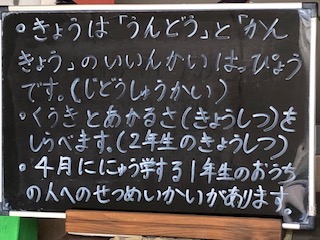 ・きょうは「うんどう」と「かん
きょう」のいいんかいはっぴょう
です。(じどうしゅうかい)
・くうきとあかるさ(きょうしつ)を
しらべます。(2年生のきょうしつ)
・4月ににゅう学する1年生のおうち
の人へのせつめいかいがあります。